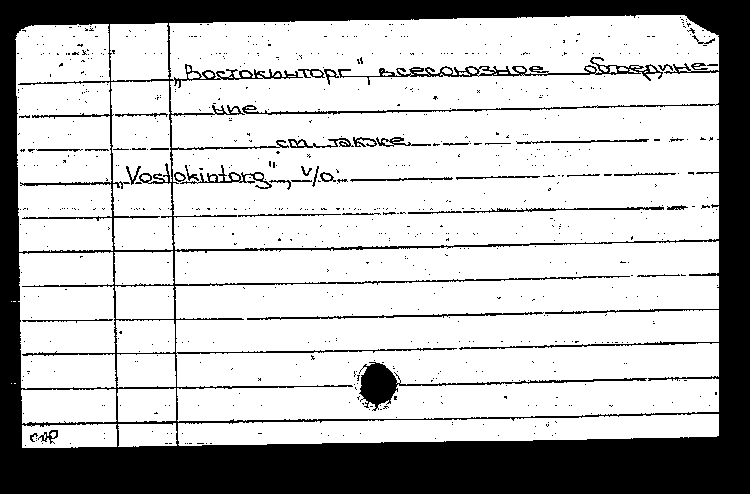 „Востокинторг", всесоюзное объедине-
ние
см. также
„Vostokintorg", V/o.